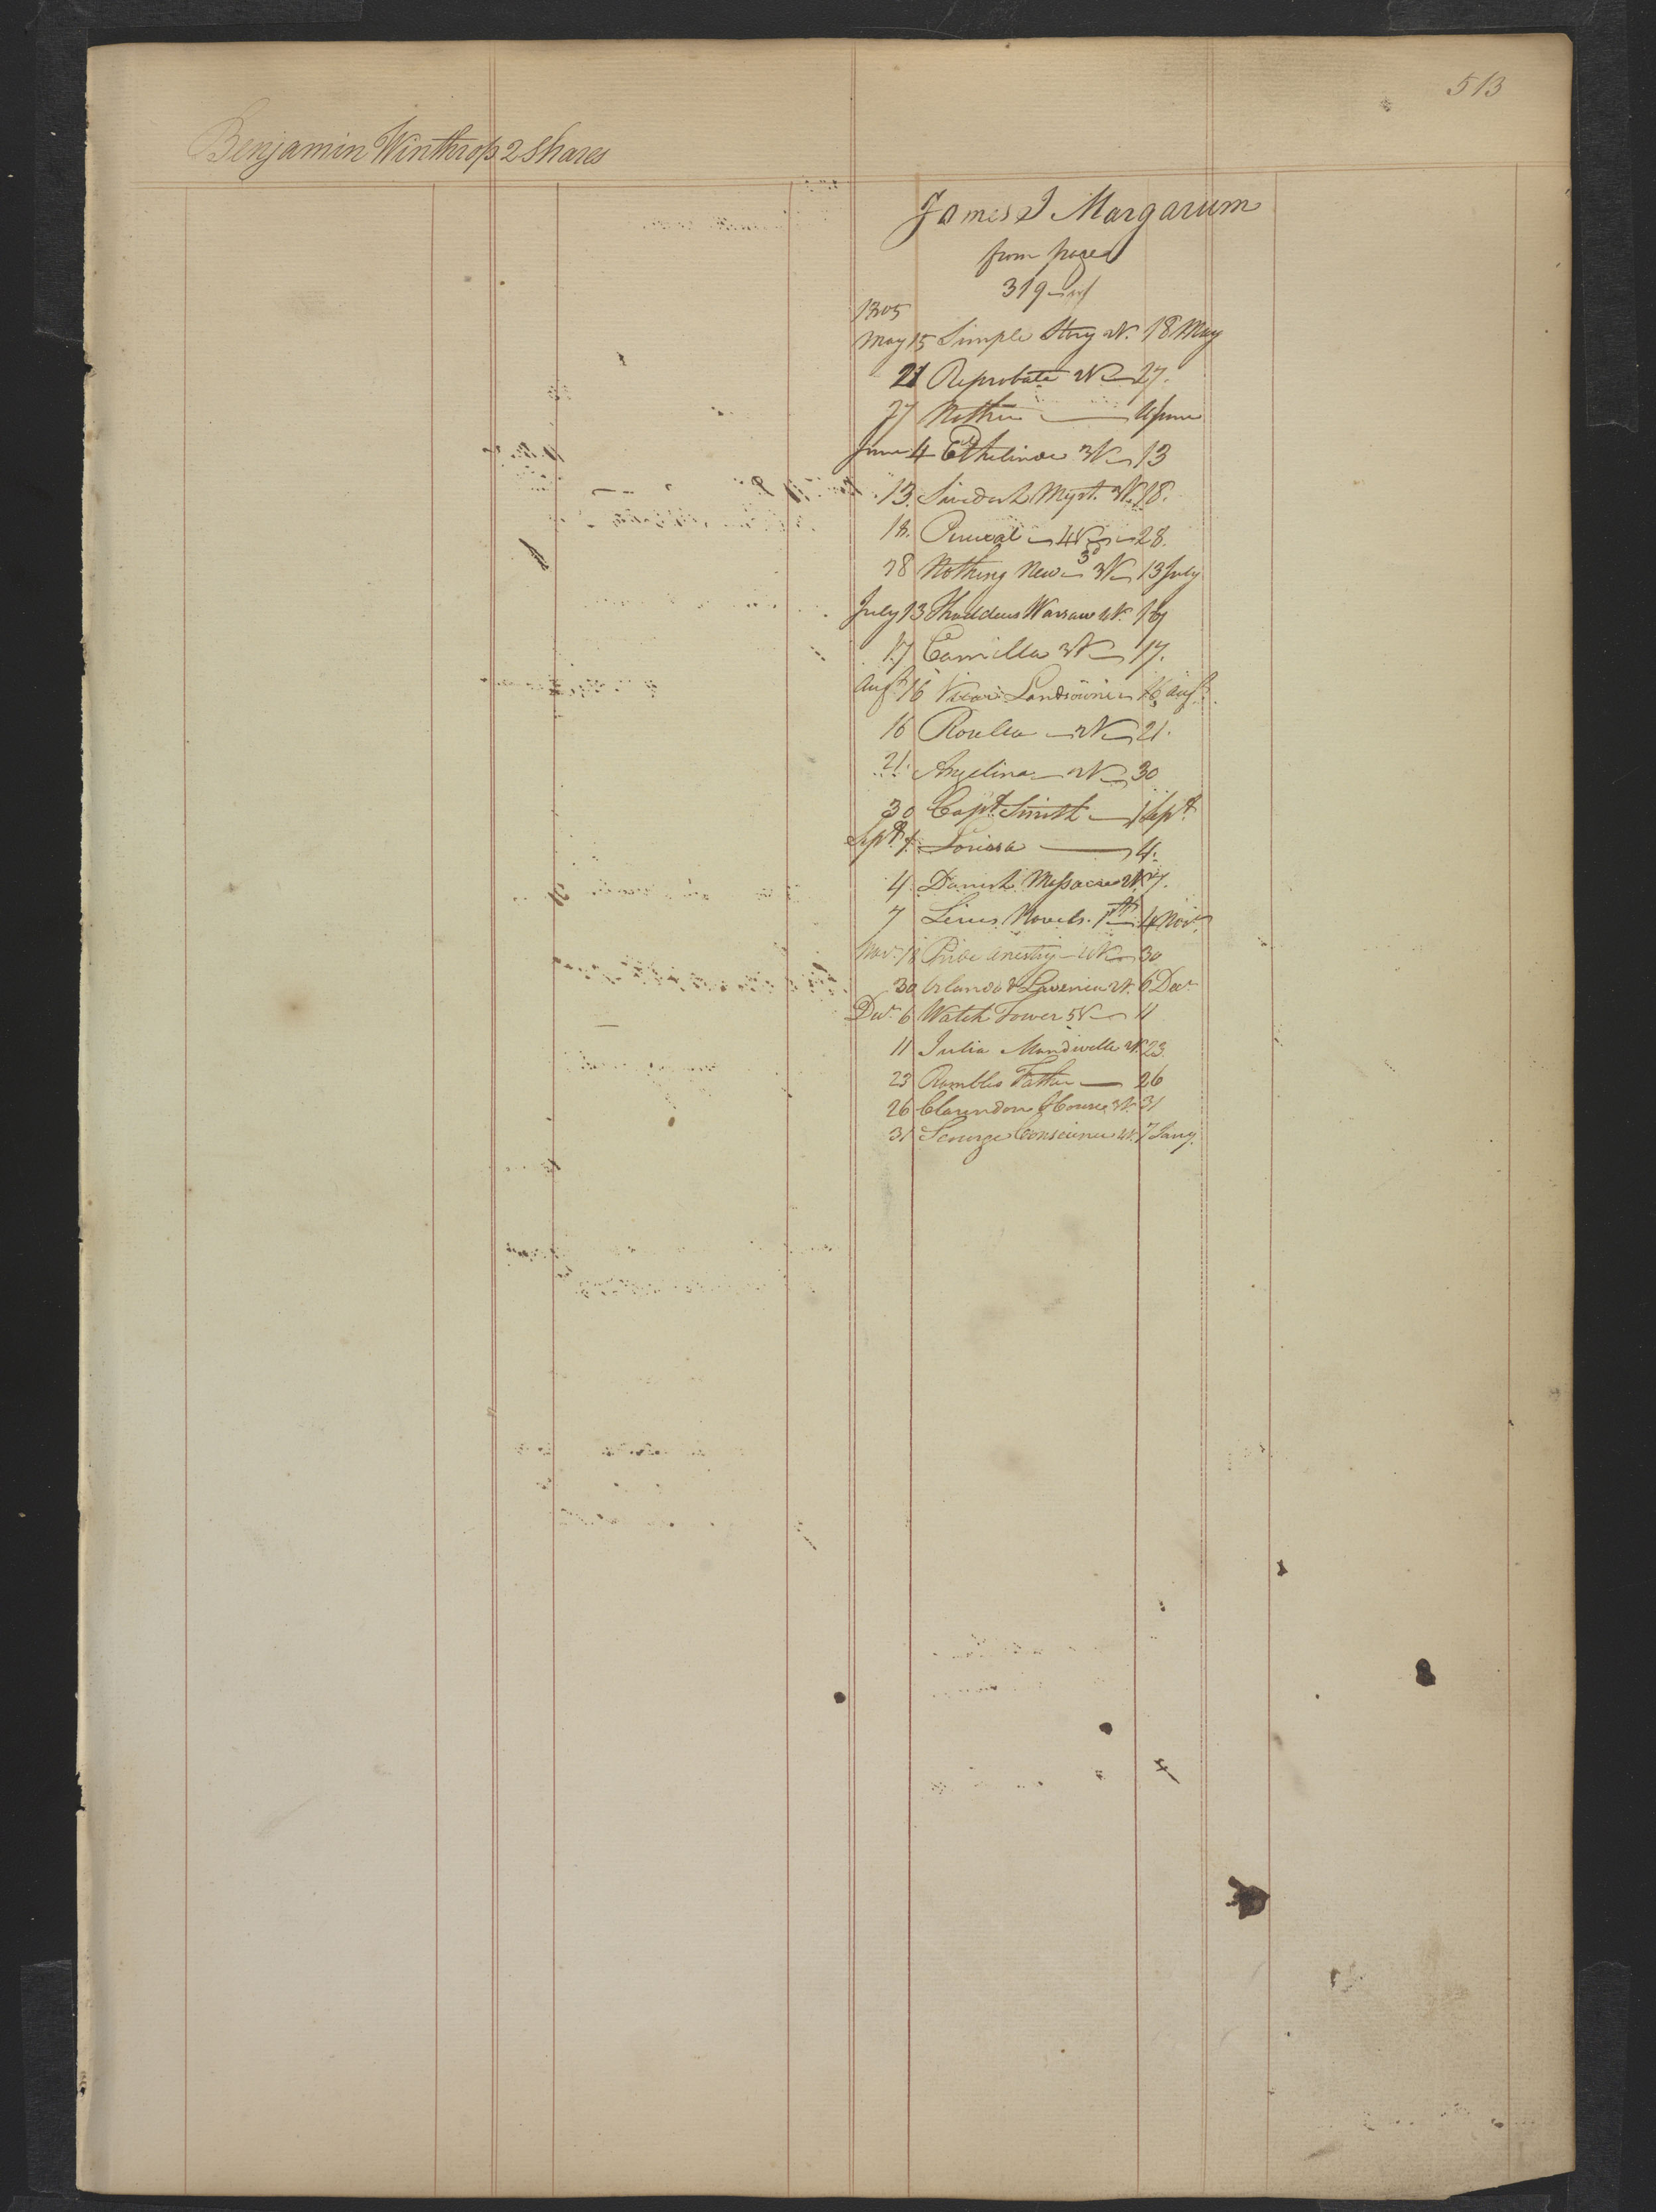 513
Benjamin Winthrop 2 Shares
James I Margarum
from page
319
1805
May 15 Simple Story 2V. 18 May
21 Reprobate 2V 27.
27 4 June
June 4 Ethelinde 3V 13
13. Swedish Myst. 3V. 18.
18. Percival 4V 28.
28 Nothing New 3V 13 July
July 13 Thaddeus Warsaw 4V. 16
17 Camilla 3V 17.
Augt 16 Vicar Landsowne 16 Augt.
16 Rosella 2V 21.
21. Angelina 2V 30
30 Capt. Smith 1 Sept.
Sept. 1. Lorissa 4.
4. Danish Massacre 2V. 7.
7 Novels. 4 Novr.
Novr. 18 Pride Anestry 4V 30
30 Orlando & Lavenia 2V. 6 Decr
Decr. 6 Watch Tower 5V 11
11 Julia Mandeville 2V. 23.
23 Rambles Father 26
26 Clarendon House 3V. 31
31 Scourge Conscience 4V. 7 Jany.